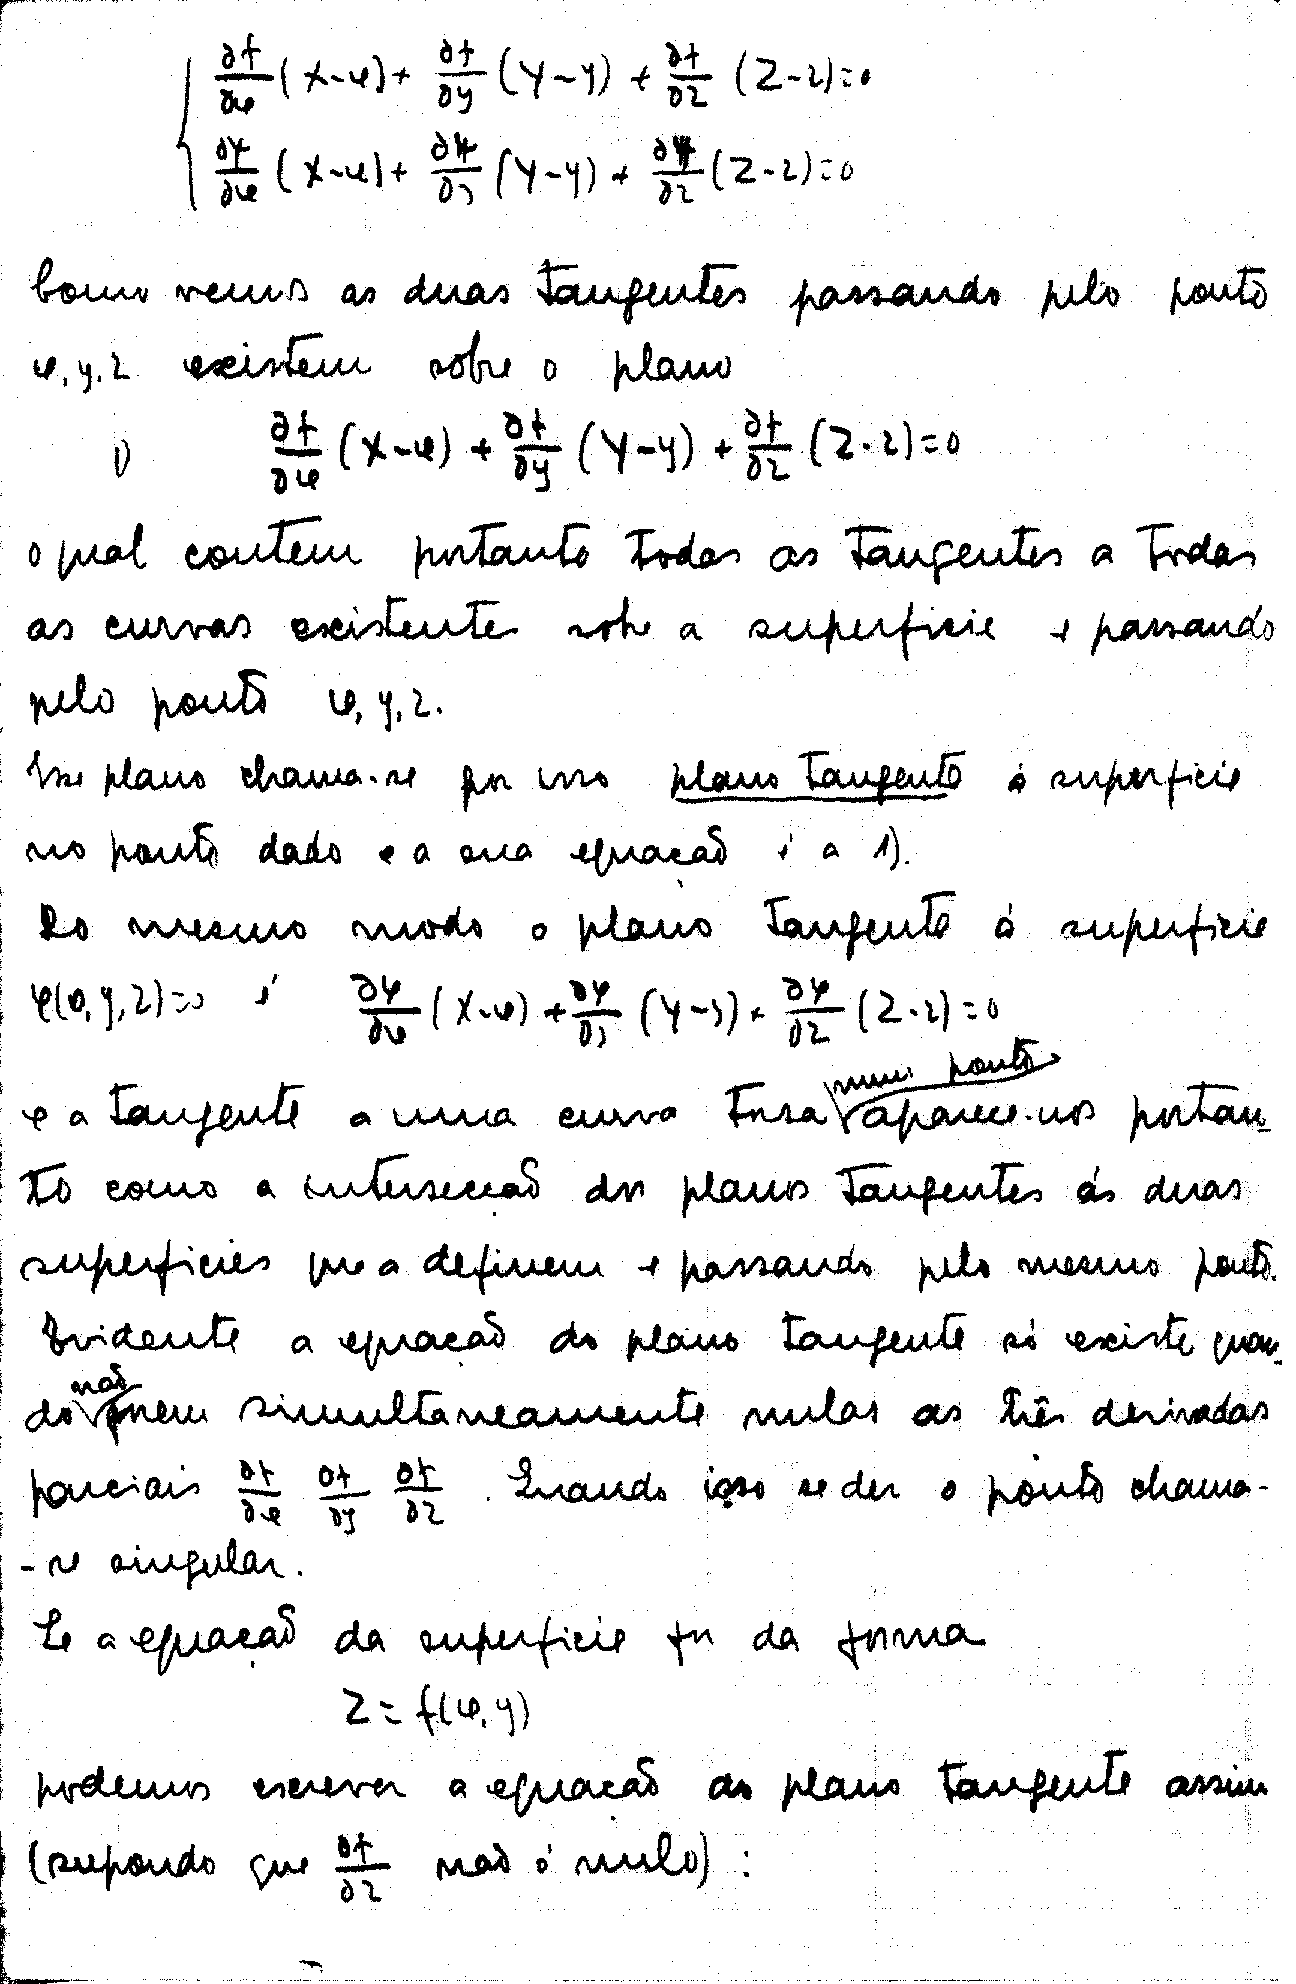 { ∂f/∂x (X-x) + ∂f/∂y (Y-y) + ∂f/∂z (Z-z) = 0
∂φ/∂x (X-x) + ∂φ/∂y (Y-y) + ∂φ/∂z (Z-z) = 0
Como vemos as duas tangentes passando pelo ponto
x, y, z existem sobre o plano
1) ∂f/∂x (X-x) + ∂f/∂y (Y-y) + ∂f/∂z (Z-z) = 0
o qual contem portanto todas as tangentes a todas
as curvas existentes sobre a superficie e passando
pelo ponto x, y, z.
Esse plano chama-se por isso plano tangente á superficie
no ponto dado e a sua equação é a 1).
Do mesmo modo o plano tangente á superficie
φ(x, y, z) = 0 é ∂φ/∂x (X-x) + ∂φ/∂y (Y-y) + ∂φ/∂z (Z-z) = 0
e a tangente a uma curva torsa num ponto aparece-nos portan-
to como a intersecção dos planos tangentes ás duas
superficies que a definem e passando pelo mesmo ponto.
Evidente a equação do plano tangente só existe quan-
do não forem simultaneamente nulas as três derivadas
parciais ∂f/∂x ∂f/∂y ∂f/∂z. Quando isso se der o ponto chama-
-se singular.
Se a equação da superficie for da forma
Z = f(x, y)
podemos escrever a equação do plano tangente assim
(supondo que ∂f/∂z não é nulo) :